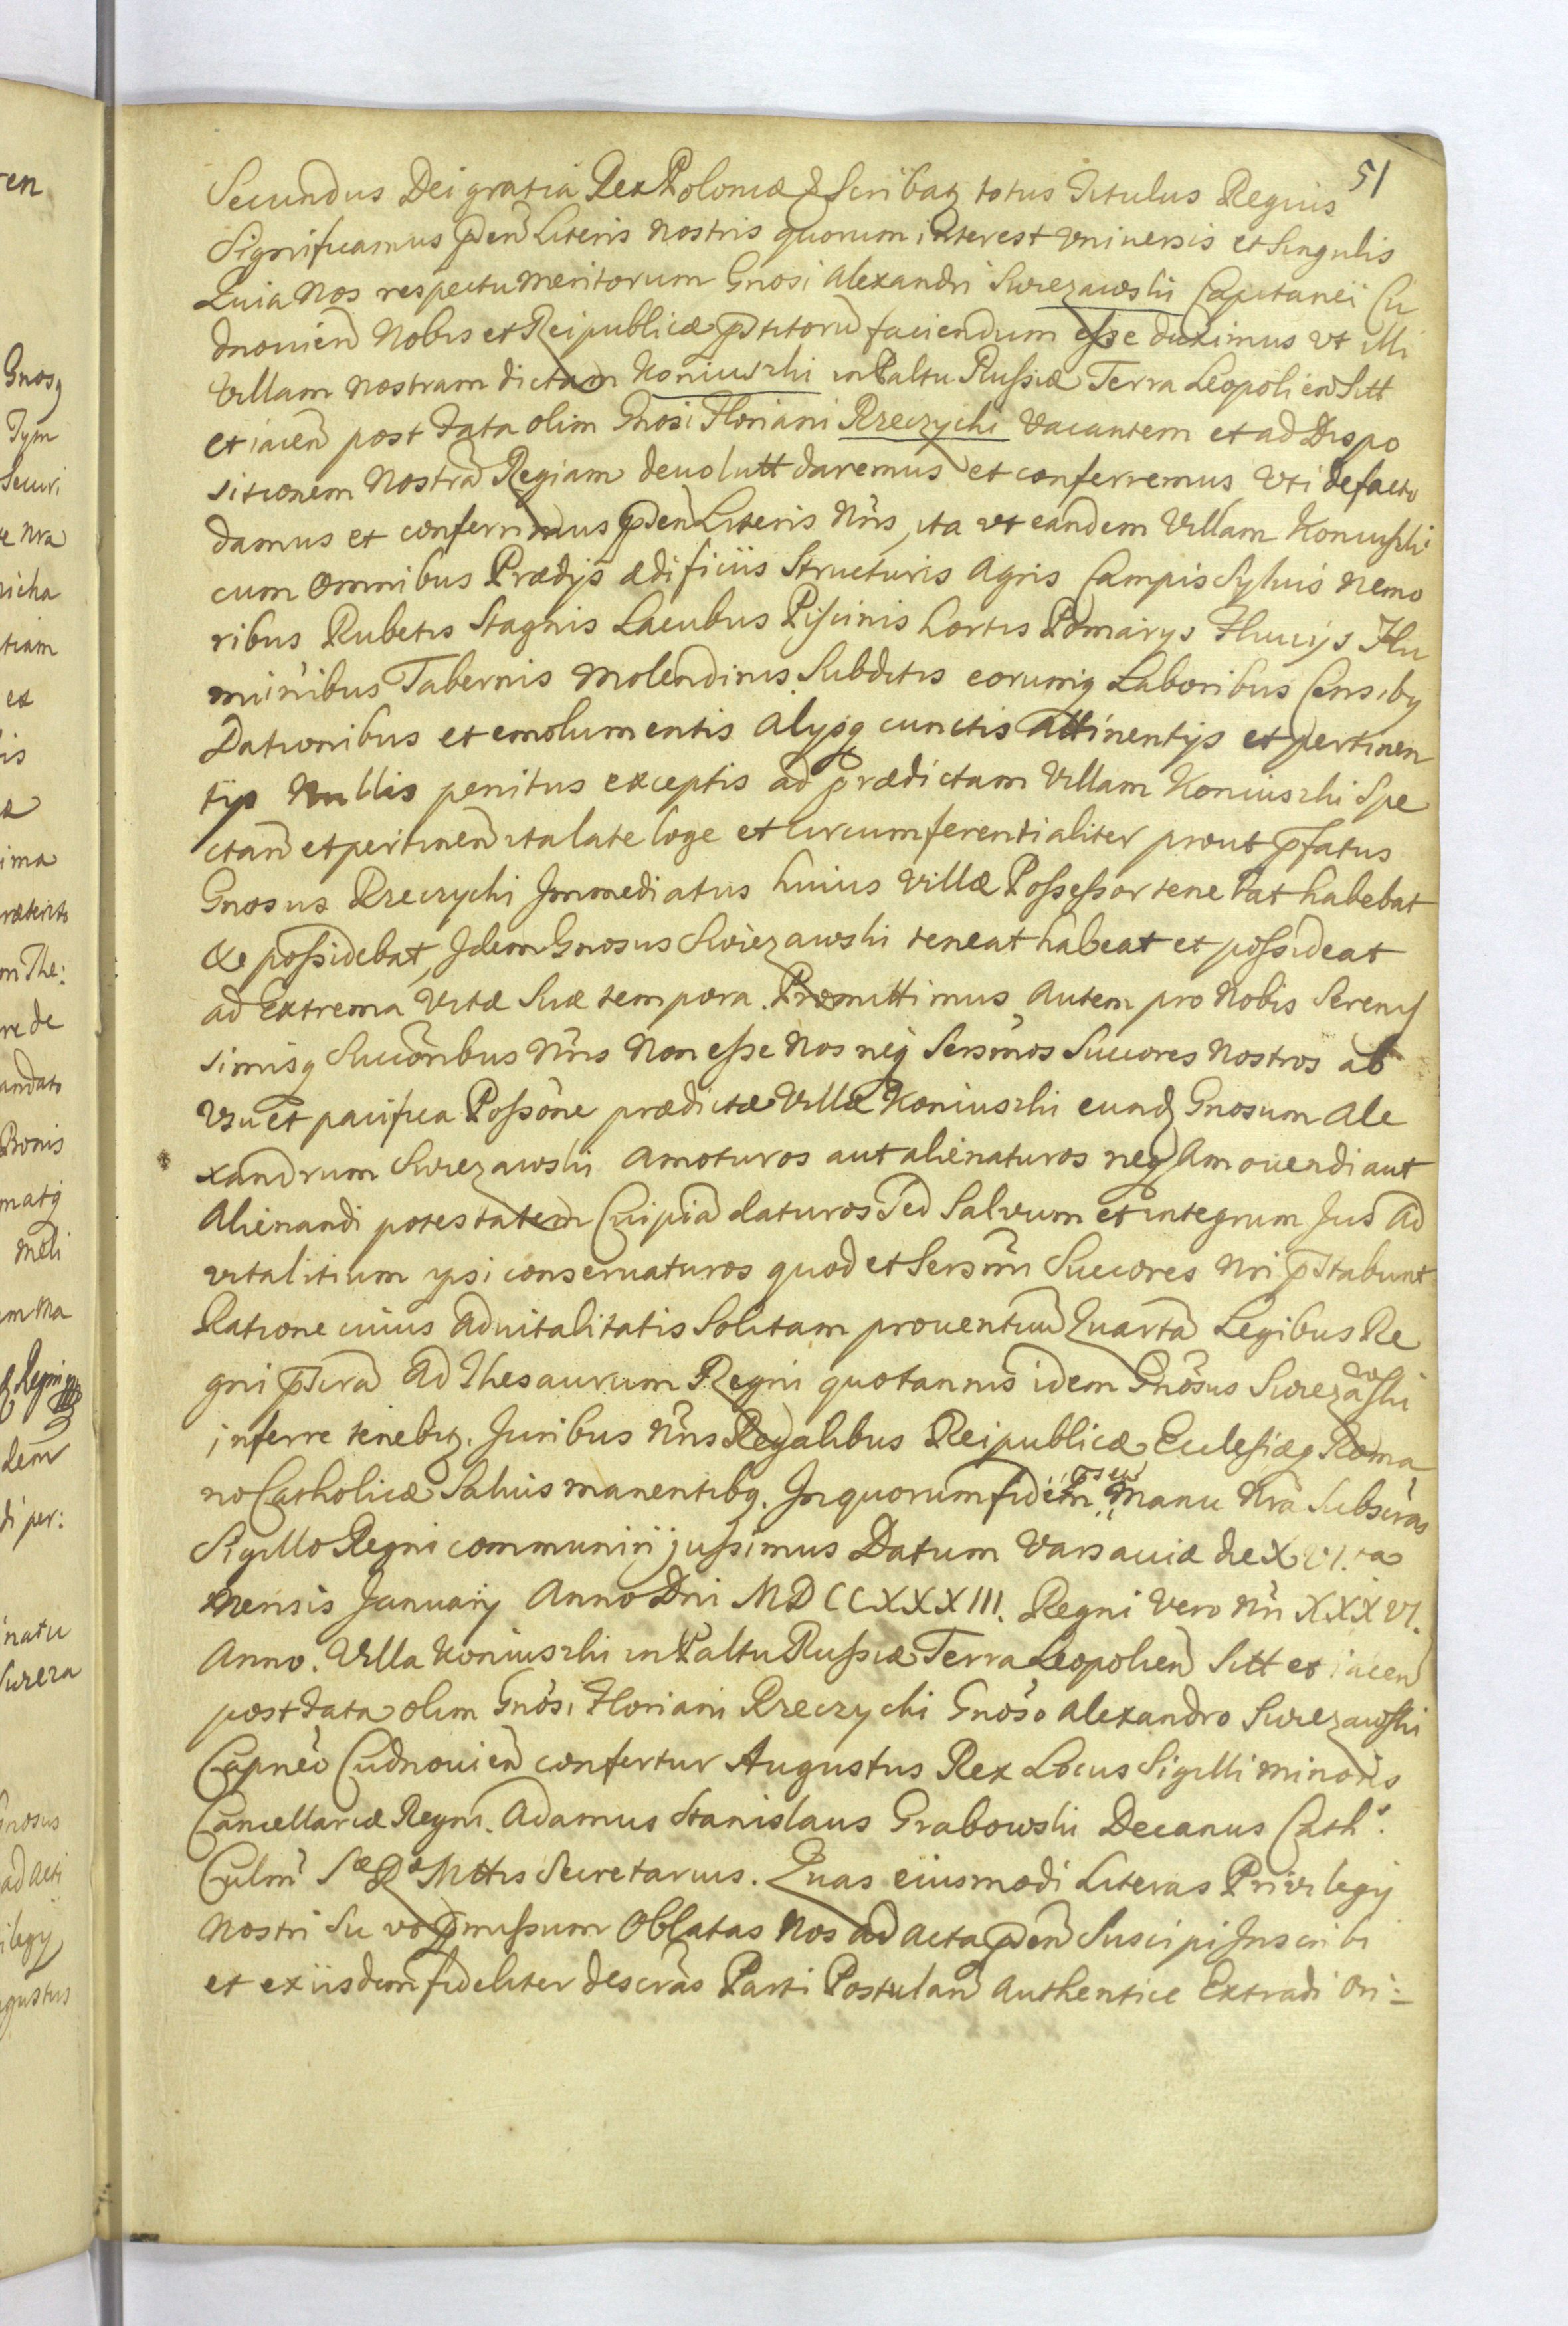 51
Secundus Dei gratia Rex Poloniæ & Scribatz totus Titulus Regius
Significamus pñen Literis nostris quorum interest universis et singulis
Quia Nos respectu meritorum Gnosi Alexandri Swiezawski Capitanei Cu
dnovien Nobis et Reipublicæ pstitorũ faciendum esse duximus ut illi
Villam nostram dictam Koniuszki in Paltu Russiæ Terra Leopolien Sitt
et iacen post fata olim Gnosi Floriani Rzeczychi Vacantem et ad Dispo
sitionem Nostrã Regiam devolutt daremus et conferremus Uti defacto
damus et conferimus pden Literis Nris, ita ut eandem Villam Koniuszki
cum Omnibus Prædijs ædificiis Structuris Agris Campis Sylvis Nemo
ribus Rubetis Stagnis Lacubus Piscinis hortis Pomarijs Fluvijs Flu
minibus Tabernis Molendinis Subditis eorumq Laboribus Censibq
Dationibus et emolumentis Alijsq cunctis Attinentijs et pertinen
tijs Nullis penitus exceptis ad prædictam Villam Koniuszki Spe
ctan et pertinen ita late loge et circumferentialiter prout pfatus
Gnosus Rzeczychi Immediatus huius Villæ Possessor tenebat habebat
& possidebat, Idem Gnosus Swiezawski teneat habeat et possideat
ad Extrema Vitæ Suæ tempora. Promittimus Autem pro Nobis Serenis
simisq Succoribus Nris Non esse Nos neq Sersmos Succores Nostros ab
Usu et pacifica Possone prædictæ Villæ Koniuszki eundz Gnosum Ale
xandrum Swiezawski Amoturos aut alienaturos neq Amovendi aut
Alienandi potestatem Cuipiã daturos Sed Salvum et integrum Jus Ad
vitalitium ipsi conservaturos quod et Sersmi Succores Nri pstabunt
Ratione cuius Advitalitatis Solitam proventuũ Quartã Legibus Re
gni pscrã Ad Thesaurum Regni quotannis idem Gnosus Swiezawski
inferre tenebtz. Juribus Nris Regalibus Reipublicæ Eclesiæq Roma
no Catholicæ Salvis manentibq. In quorum fidem Manu Nra Subscras
Sigillo Regni communiri jussimus Datum Varsaviæ die XVI.ta
Mensis January Anno Dni MDCCXXXIII. Regni Vero Nri XXXVI.
Anno. Villa Koniuszki in Paltu Russiæ Terra Leopolien Sitt et iacen
post fata olim Gnosi Floriani Rzeczychi Gnoso Alexandro Swiezawski
Capneo Cudnovien confertur Augustus Rex Locus Sigilli minoris
Cancellariæ Regni. Adamus Stanislaus Grabowski Decanus Cath:
Culm Sæ Ræ Mttis Secretarius. Quas eiusmodi Literas Privilegij
Nostri Su vopmissum Oblatas Nos ad acta pden Suscipi Inscribi
et exiisdem fideliter descras Parti Postulan Authentice Extradi Ori: